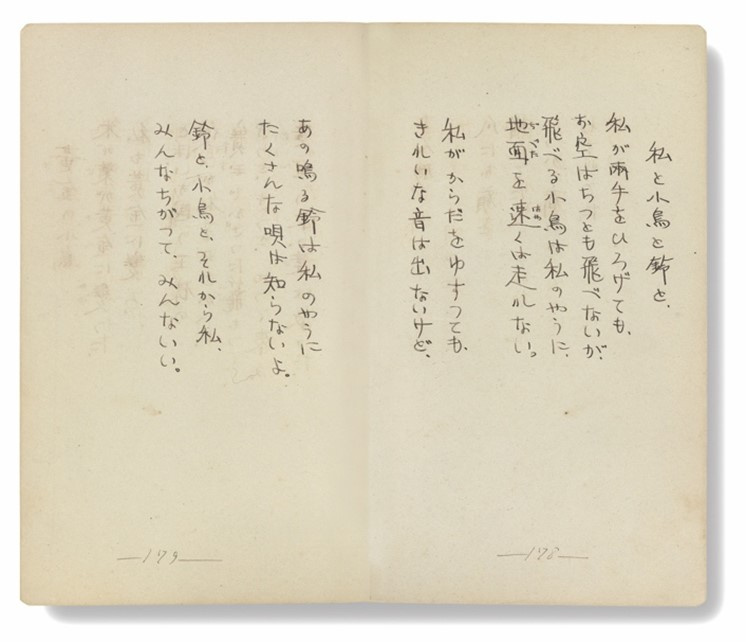 私と小鳥と鈴と、
私が兩手をひろげても、
お空はちつとも飛べないが、
飛べる小鳥は私のやうに、
地面を速くは走れない。
私がからだをゆすつても、
きれいな音は出ないけど、
—178—
あの鳴る鈴は私のやうに
たくさんな唄は知らないよ。
鈴と、小鳥と、それから私、
みんなちがつて、みんないい。
—179—